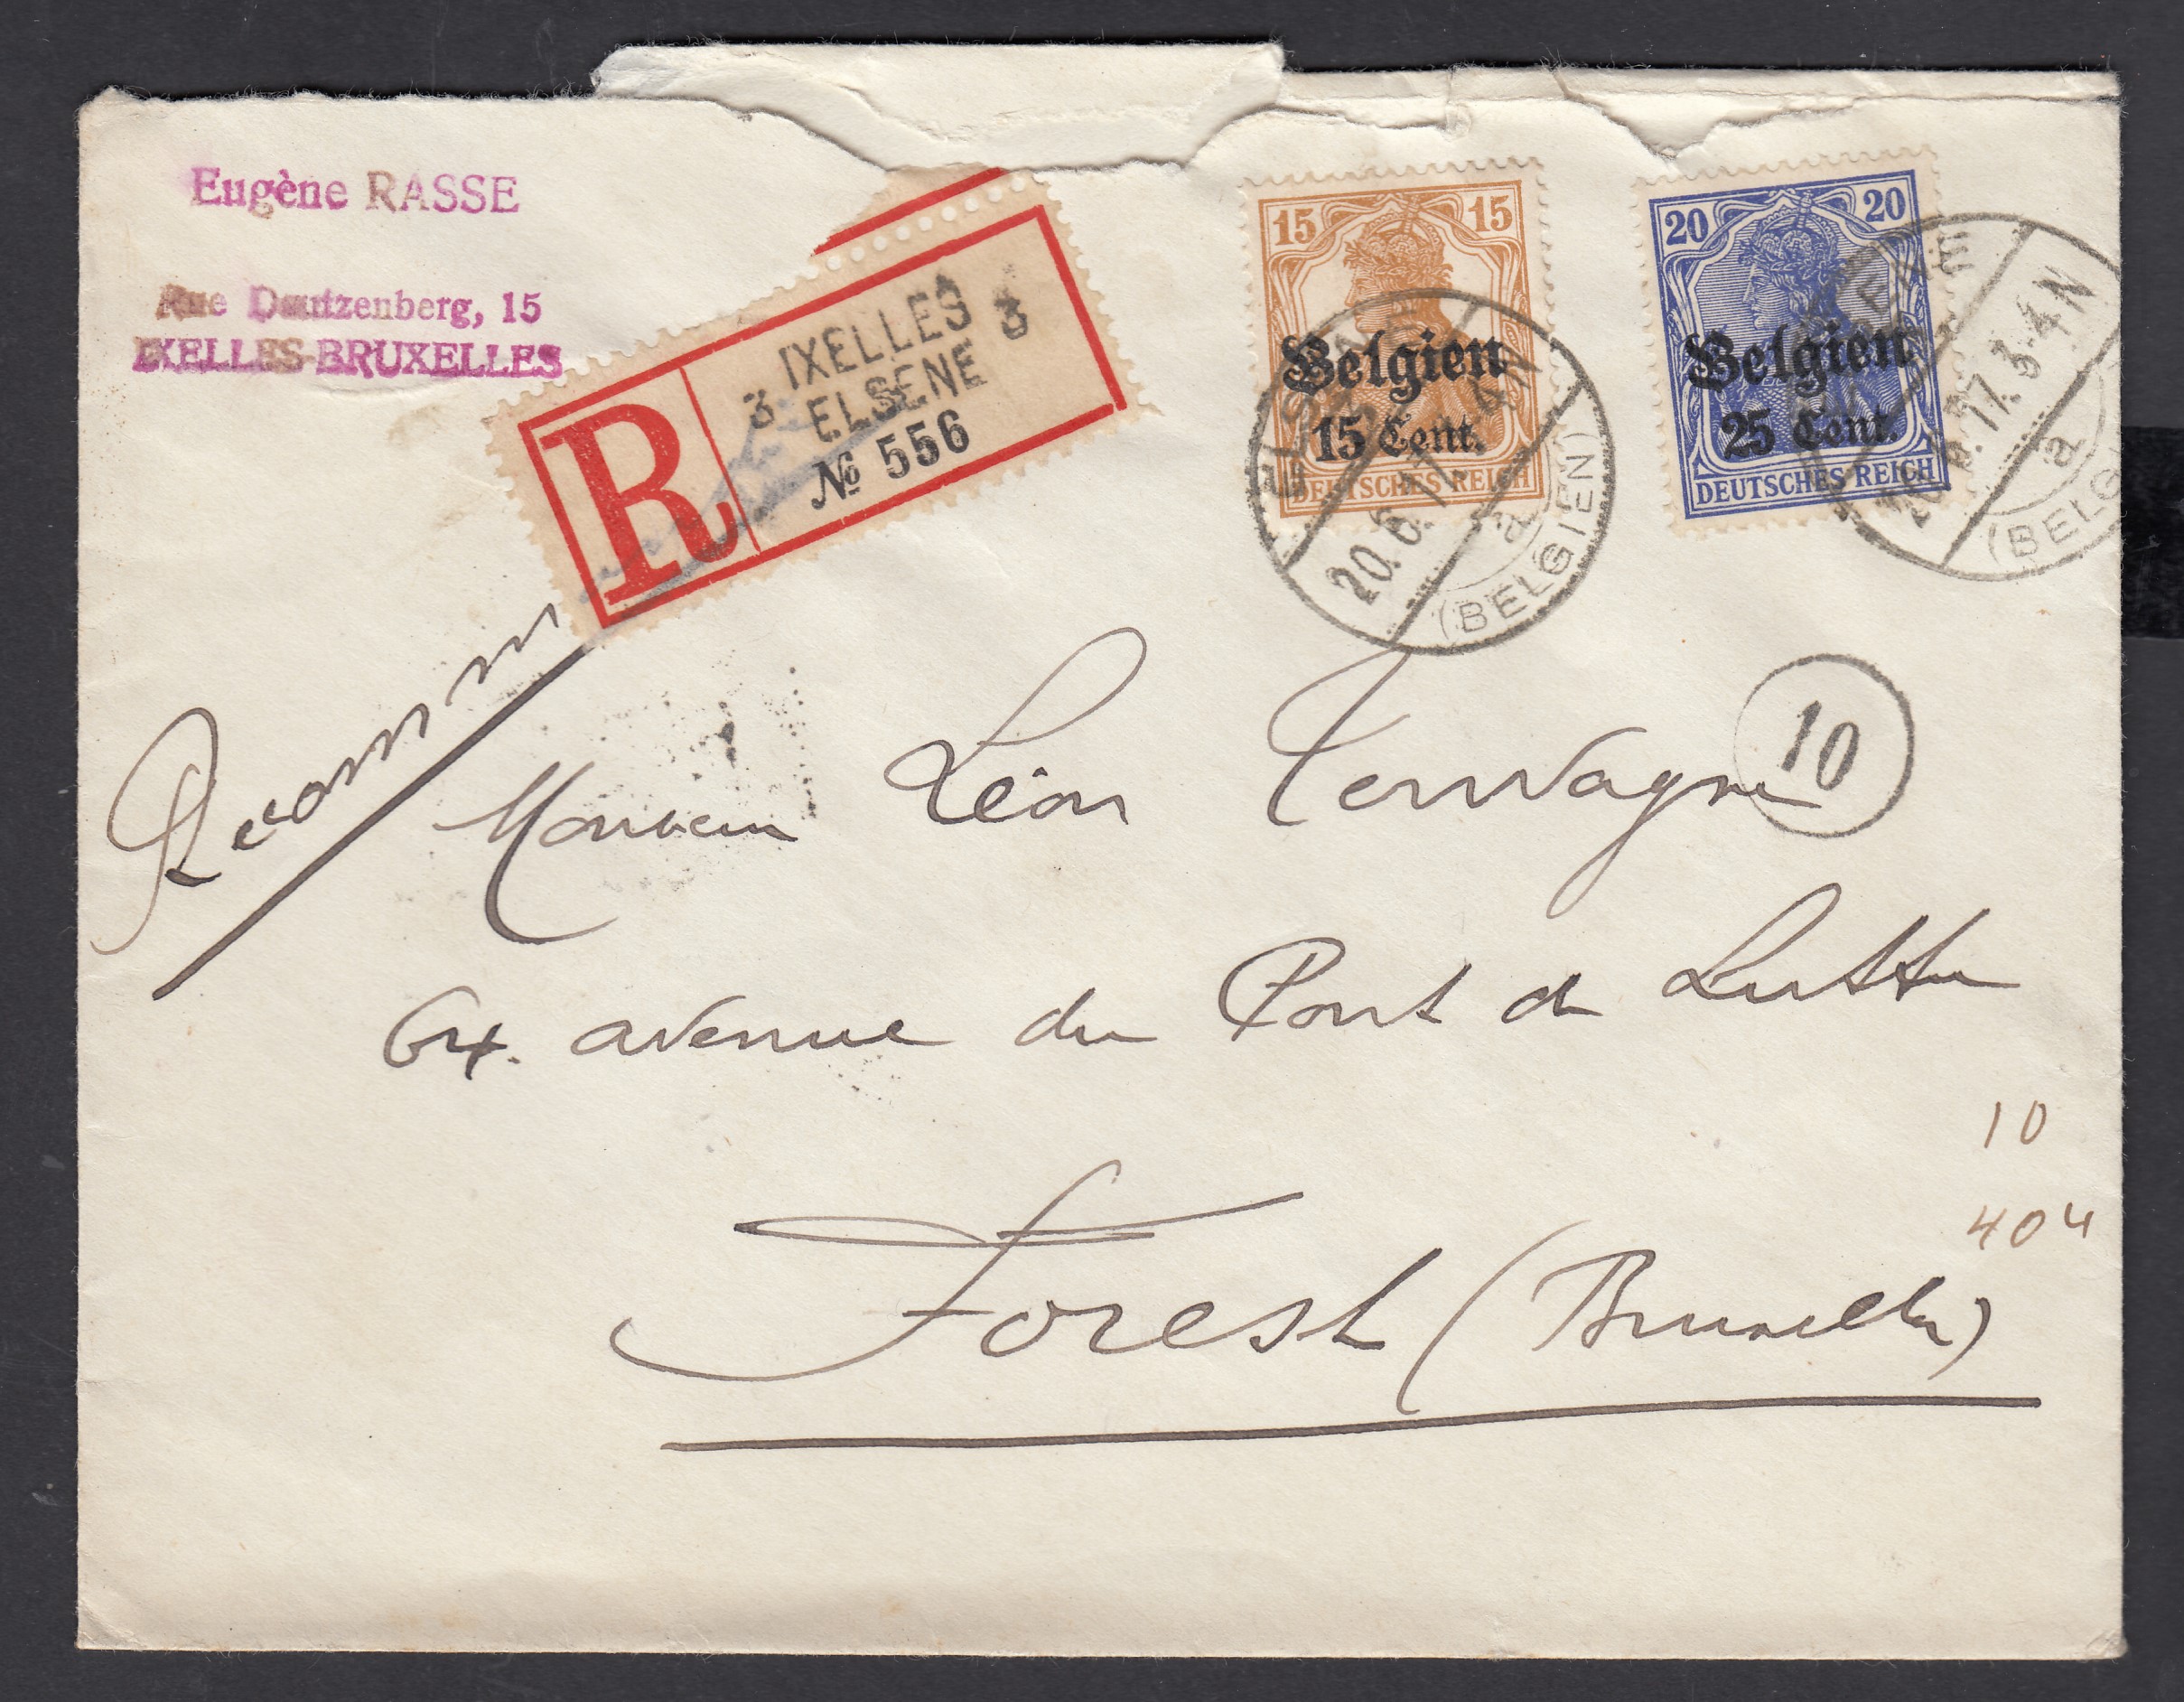 Eugène RASSE
Rue Dautzenberg, 15
IXELLES-BRUXELLES
R
3 IXELLES 3
ELSENE
№ 556
15 15
Belgien
15 Cent.
DEUTSCHES REICH
20 20
Belgien
25 Cent.
DEUTSCHES REICH
ELSENE
20.6.17. 3-4N
a
(BELGIEN)
ELSENE
20.6.17. 3-4N
a
(BELG
Recomm
10
Monsieur Léon Terwagne
64. avenue du Pont de Luttre
10
404
Forest (Bruxelles)